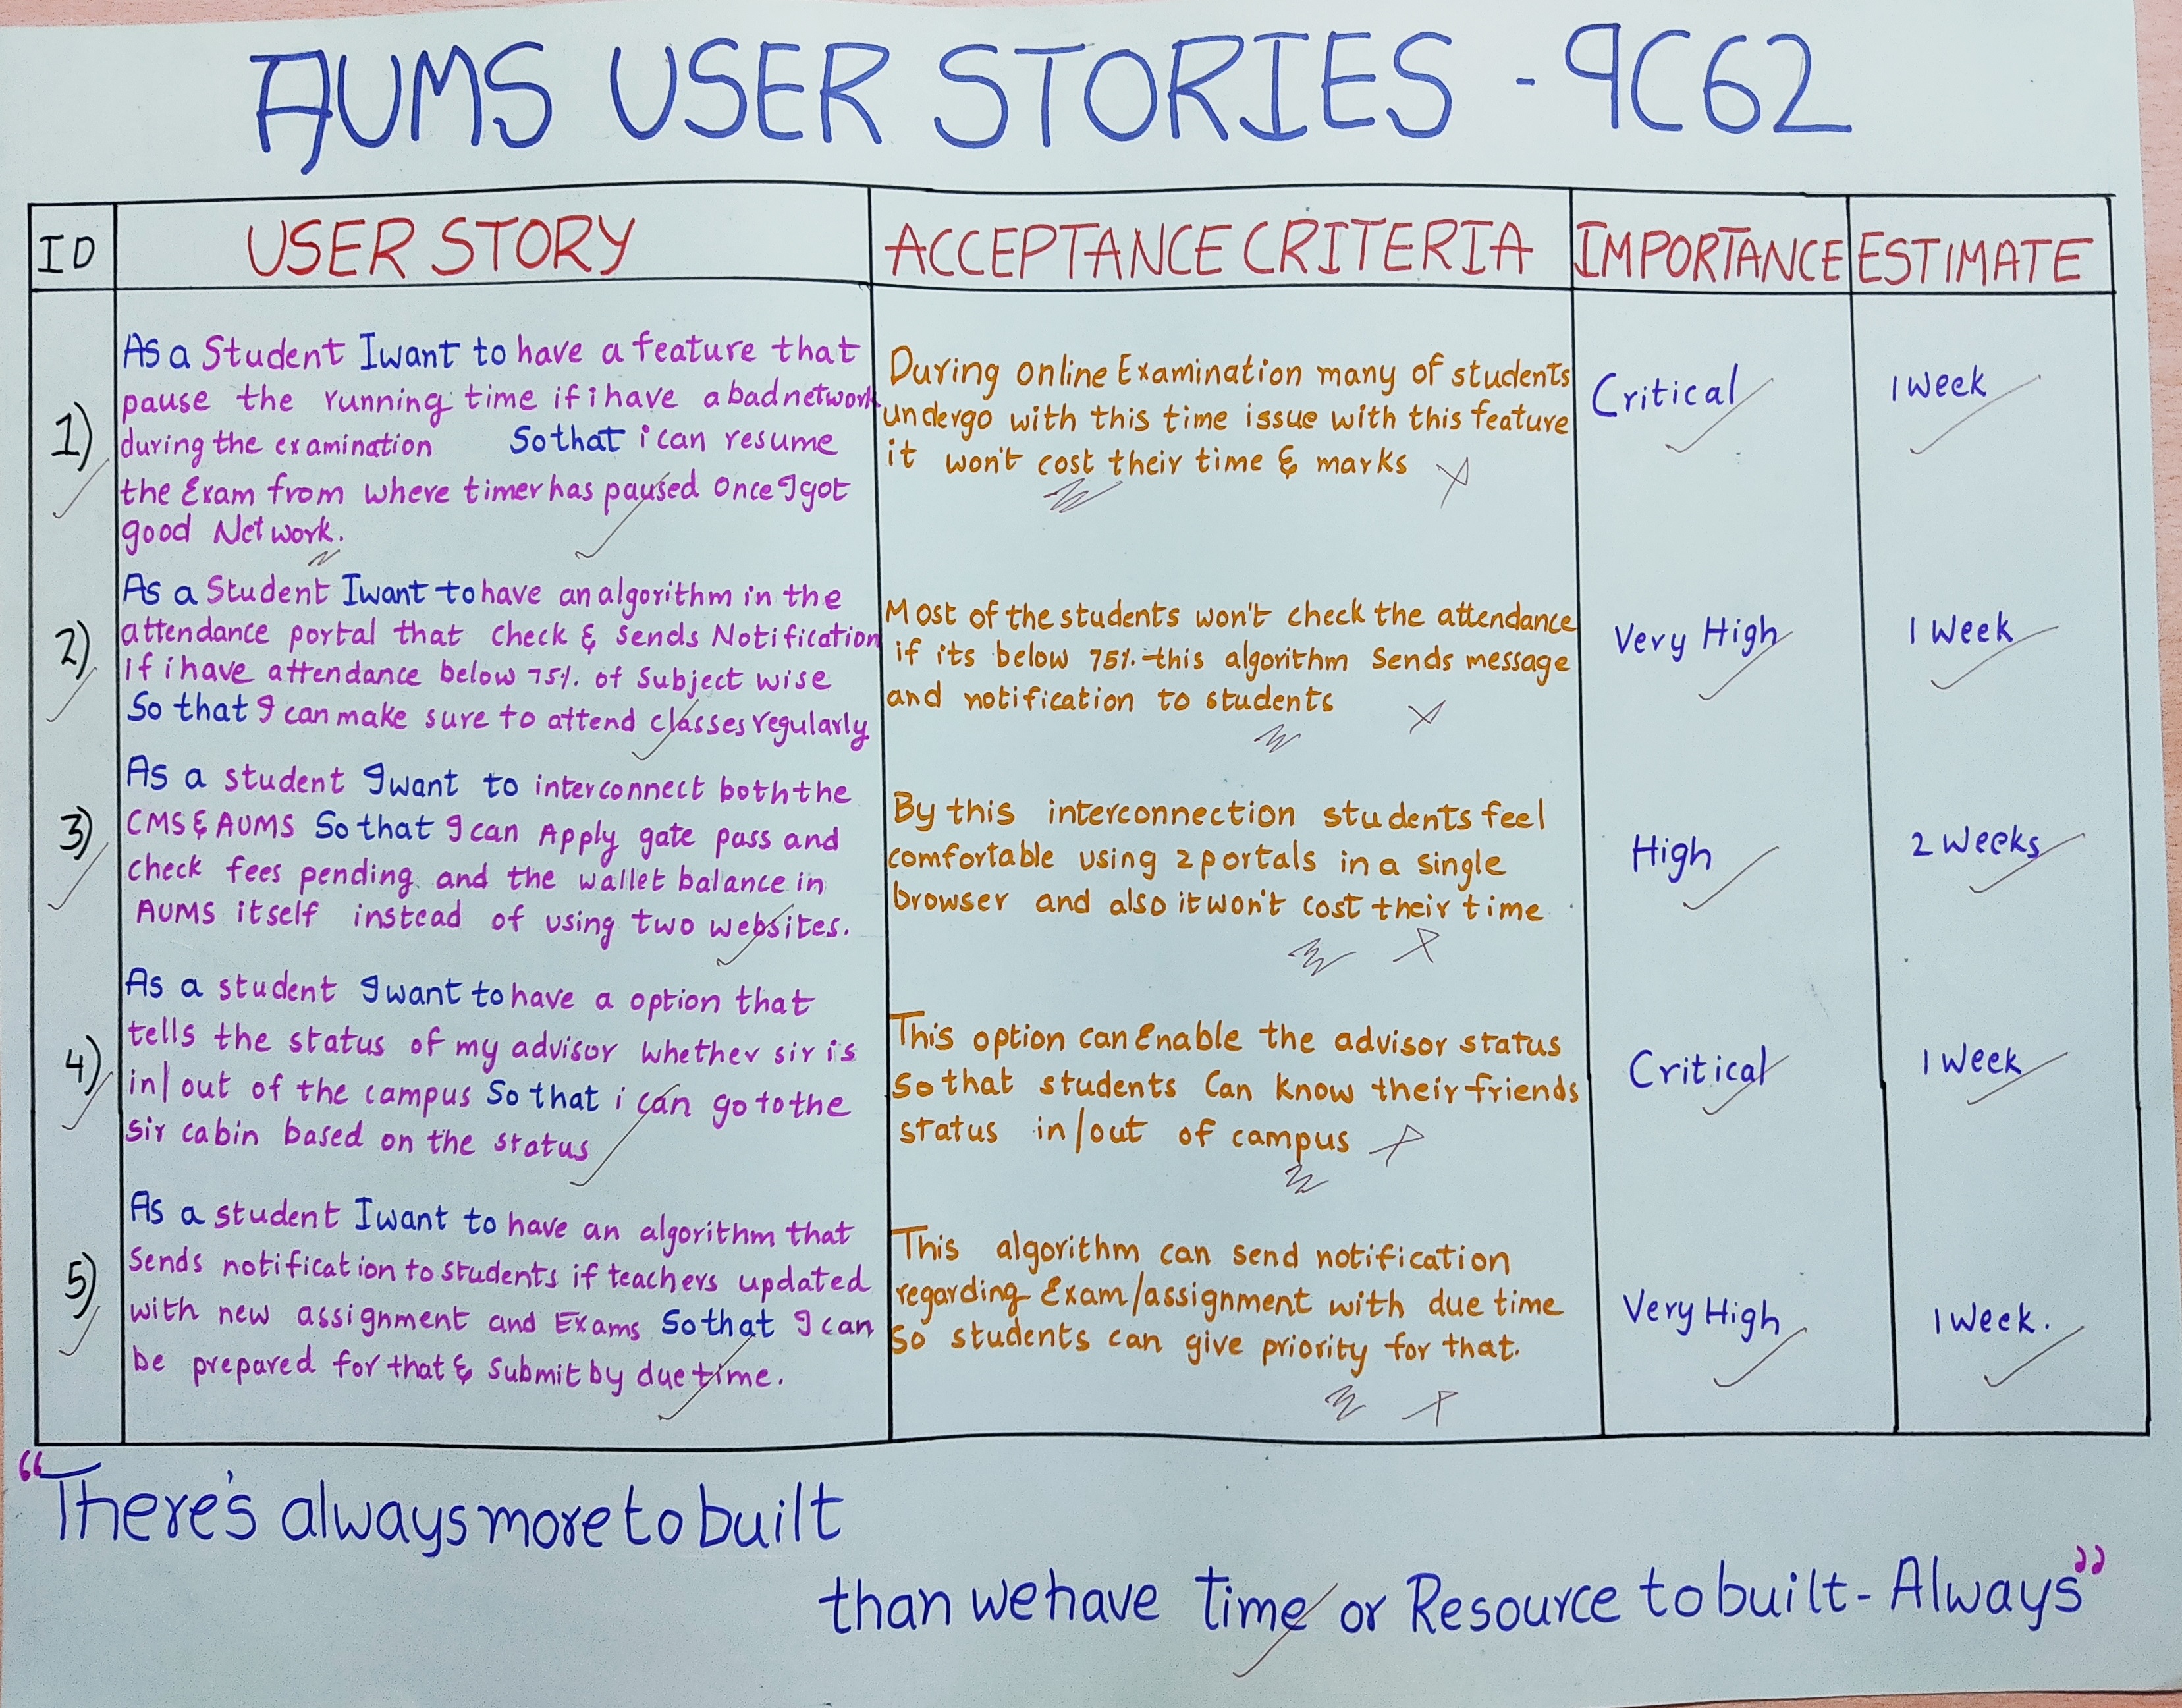 AUMS USER STORIES - 9C62
ID
USER STORY
ACCEPTANCE CRITERIA
IMPORTANCE
ESTIMATE
1)
As a Student I want to have a feature that
pause the running time if i have a bad network
during the examination So that i can resume
the Exam from where timer has paused Once I got
good Network.
During online Examination many of students
undergo with this time issue with this feature
it won't cost their time & marks
Critical
1 week
2)
As a Student I want to have an algorithm in the
attendance portal that check & sends Notification
If i have attendance below 75%. of Subject wise
So that I can make sure to attend classes regularly
Most of the students won't check the attendance
if its below 75%. this algorithm Sends message
and notification to students
Very High
1 Week
3)
As a student I want to interconnect both the
CMS & AUMS So that I can Apply gate pass and
check fees pending and the wallet balance in
AUMS itself instead of using two websites.
By this interconnection students feel
comfortable using 2 portals in a single
browser and also it won't cost their time
High
2 Weeks
4)
As a student I want to have a option that
tells the status of my advisor whether sir is
in/out of the campus So that i can go to the
sir cabin based on the status
This option can Enable the advisor status
So that students Can know their friends
status in/out of campus
Critical
1 Week
5)
As a student I want to have an algorithm that
Sends notification to students if teachers updated
with new assignment and Exams So that I can
be prepared for that & Submit by due time.
This algorithm can send notification
regarding Exam/assignment with due time
So students can give priority for that.
Very High
1 Week.
"There's always more to built
than we have time or Resource to built - Always"